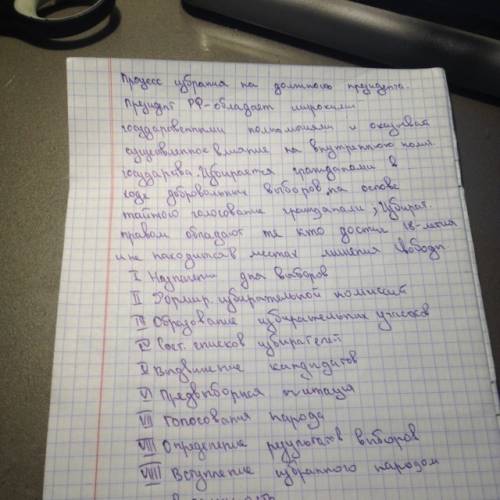 Процесс избрания на должность президента.
Президент РФ-обладает широкими
государственными полномочиями и оказывает
существенное влияние на внутреннюю полит
государства. Избирается гражданами в
ходе добровольных выборов, на основе
тайного голосование гражданами, Избират.
правом обладают те кто достиг 18-летия
и не находится в местах лишения свободы
I Назначение дня выборов
II Формир. избирательной комиссий
III Образование избирательных участков
IV Сост. списков избирателей
V Выдвижение кандидатов
VI Предвыборная агитация
VII Голосования народа
VIII Определение результатов выборов
VIIII Вступление избранного народом